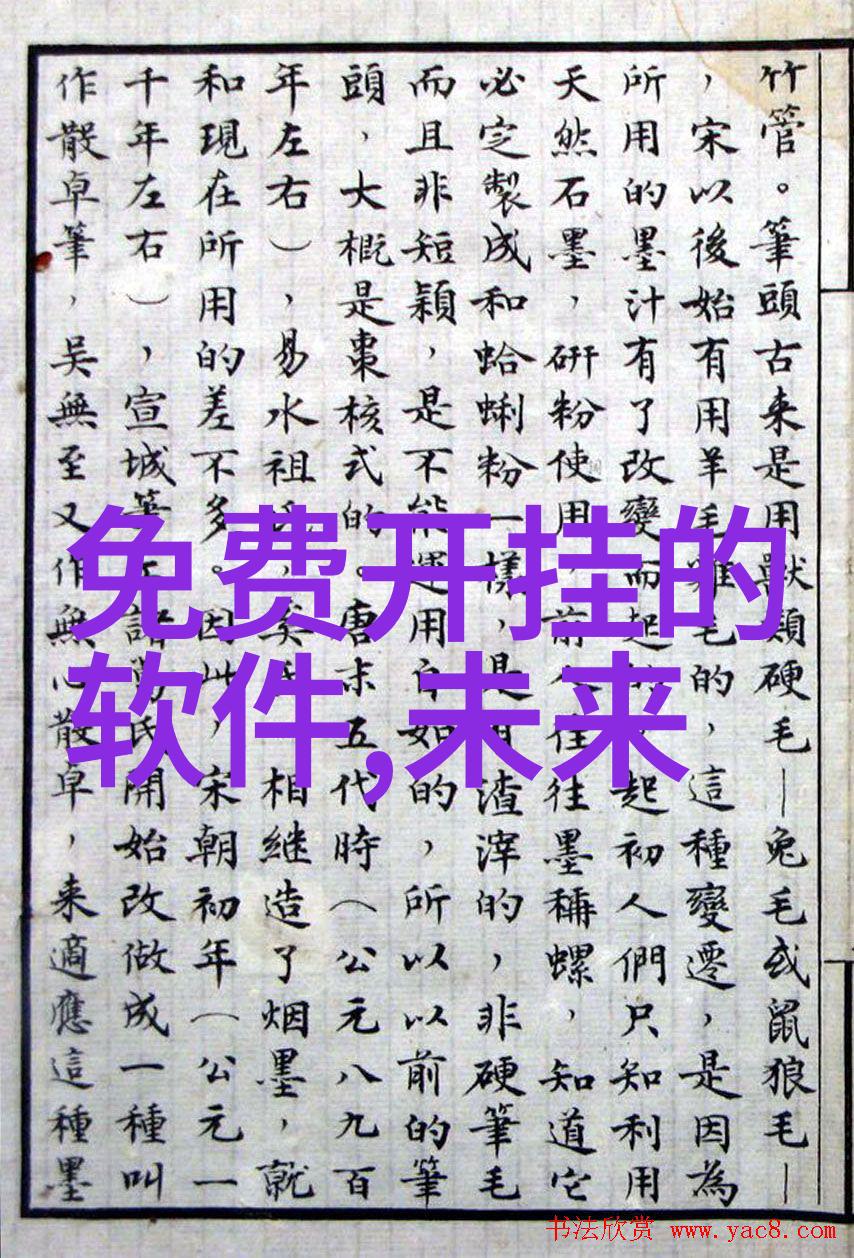 竹管。筆頭古来是用獸類硬毛—兔毛或鼠狼毛—
，宋以後始有用羊毛雞毛的，這種變遷，是因為
所用的墨汁有了改變而起的，起初人們只知利用
天然石墨，研粉使用，前人往往墨稱螺，知道它
必定製成和蛤蜊粉一樣，是有渣滓的，非硬筆毛
而且非短穎，是不能運用自如的，所以以前的筆
頭，大概是棗核式的。唐末五代時（公元八九百
年左右），易水祖氏，奚氏，相继造了烟墨，就
和現在所用的差不多。因此，宋朝初年（公元一
千年左右），宣城筆工諸葛氏開始改做成一種叫
作散卓筆，吴無至又作無心散卓，来適應這種墨
免费开挂的
软件,未来
书法欣赏 www.yac8.com